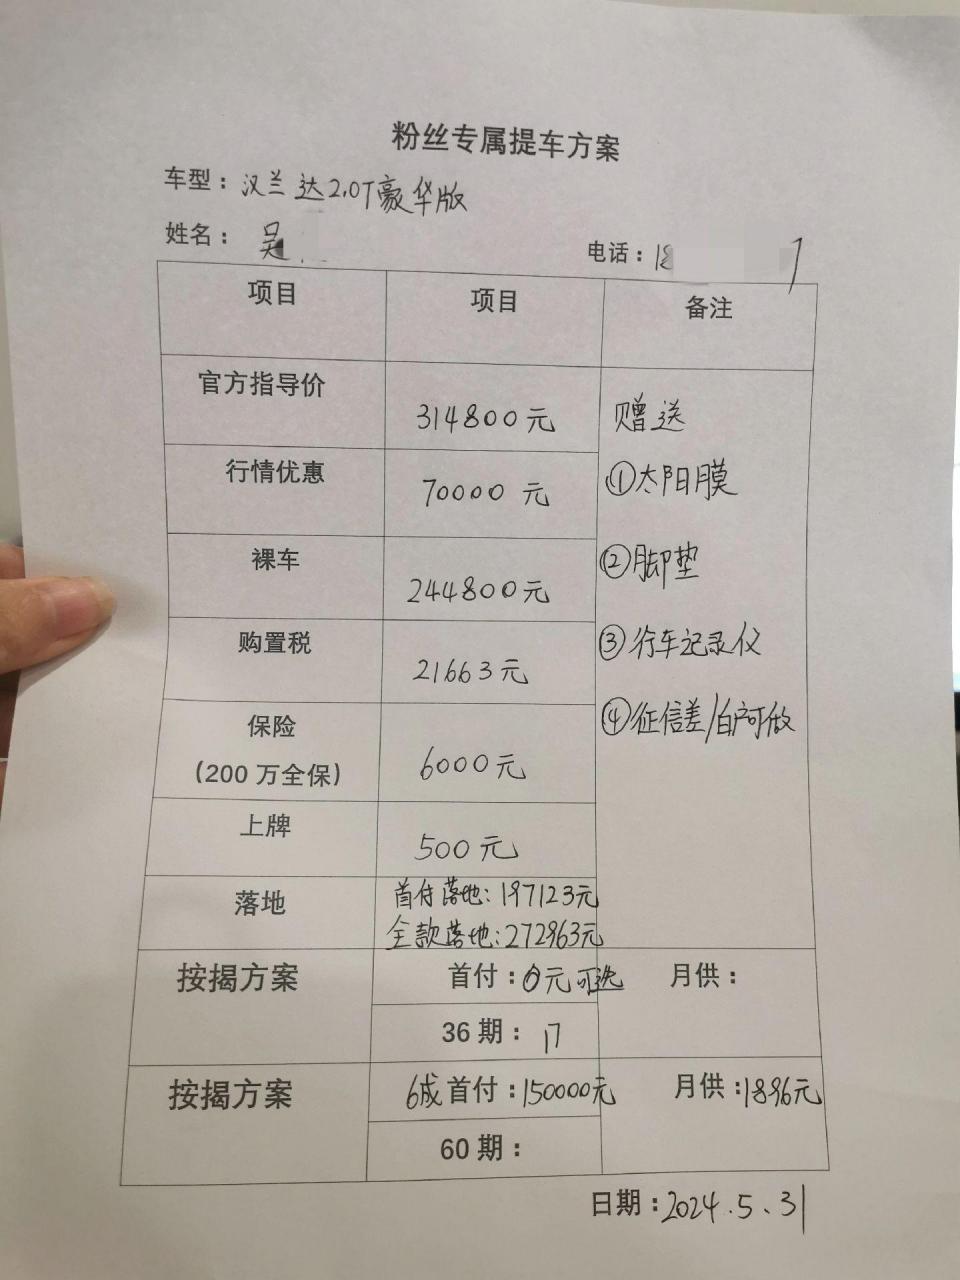 粉丝专属提车方案
车型：汉兰达2.0T豪华版
姓名：吴
电话：18
项目 项目 备注
官方指导价 314800元 赠送
行情优惠 70000元 ①太阳膜
裸车 244800元 ②脚垫
购置税 21663元 ③行车记录仪
保险
（200万全保） 6000元 ④征信差/白户可做
上牌 500元
落地 首付落地：197123元
全款落地：272963元
按揭方案 首付：0元可选 月供：
36期：
按揭方案 6成首付：150000元 月供：1896元
60期：
日期：2024.5.31